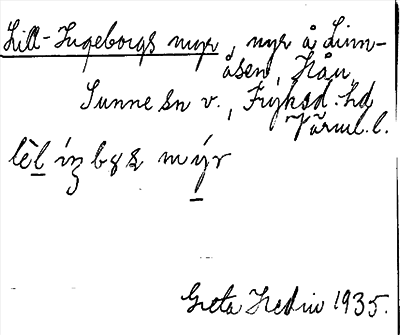 Lill-Ingeborgs myr, myr å Lim-
åsen, Hån,
Sunne sn v., Fryksd. hd
Värml. l.
Greta Hedin 1935.